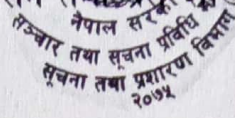 नेपाल सरका
सञ्चार तथा सूचना प्रविधि
सूचना तथा प्रशारण विभाग
२०७५